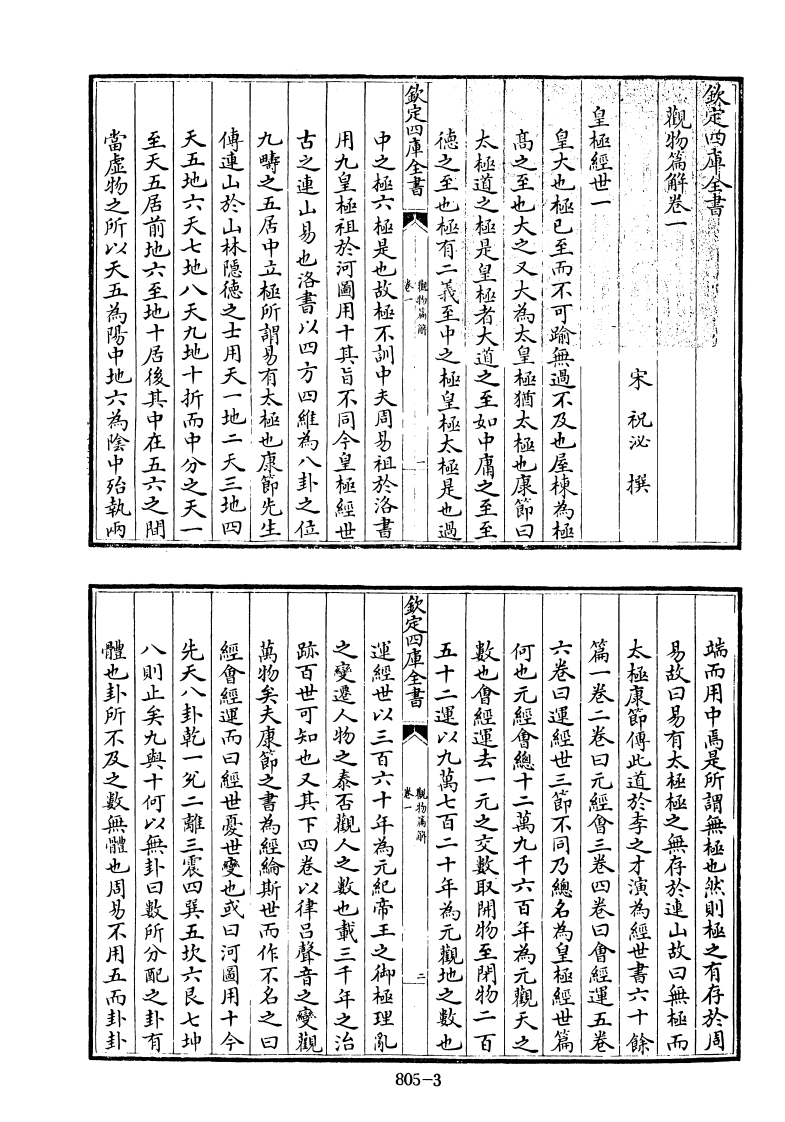 欽定四庫全書
觀物篇解卷一
宋 祝泌 撰
皇極經世一
皇大也極已至而不可踰無過不及也屋棟為極
高之至也大之又大為太皇極猶太極也康節曰
太極道之極是皇極者大道之至如中庸之至至
德之至也極有二義至中之極皇極太極是也過
欽定四庫全書
觀物篇解
卷一
一
中之極六極是也故極不訓中夫周易祖於洛書
用九皇極祖於河圖用十其旨不同今皇極經世
古之連山易也洛書以四方四維為八卦之位
九疇之五居中立極所謂易有太極也康節先生
傳連山於山林隱德之士用天一地二天三地四
天五地六天七地八天九地十折而中分之天一
至天五居前地六至地十居後其中在五六之間
當虛物之所以天五為陽中地六為陰中殆執兩
端而用中焉是所謂無極也然則極之有存於周
易故曰易有太極極之無存於連山故曰無極而
太極康節傳此道於李之才演為經世書六十餘
篇一卷二卷曰元經會三卷四卷曰會經運五卷
六卷曰運經世三節不同乃總名為皇極經世篇
何也元經會總十二萬九千六百年為元觀天之
數也會經運去一元之交數取開物至閉物二百
五十二運以九萬七百二十年為元觀地之數也
欽定四庫全書
觀物篇解
卷一
二
運經世以三百六十年為元紀帝王之御極理亂
之變遷人物之泰否觀人之數也載三千年之治
跡百世可知也又其下四卷以律呂聲音之變觀
萬物矣夫康節之書為經綸斯世而作不名之曰
經會經運而曰經世憂世變也或曰河圖用十今
先天八卦乾一兊二離三震四巽五坎六艮七坤
八則止矣九與十何以無卦曰數所分配之卦有
體也卦所不及之數無體也周易不用五而卦卦
805-3